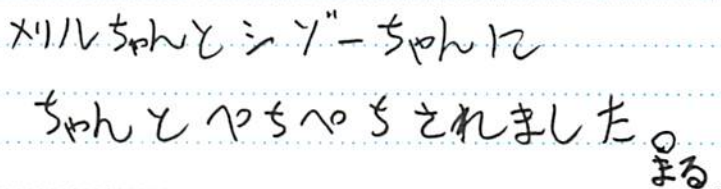 メリルちゃんとシゾーちゃんに
ちゃんとぺちぺちされました。
まる